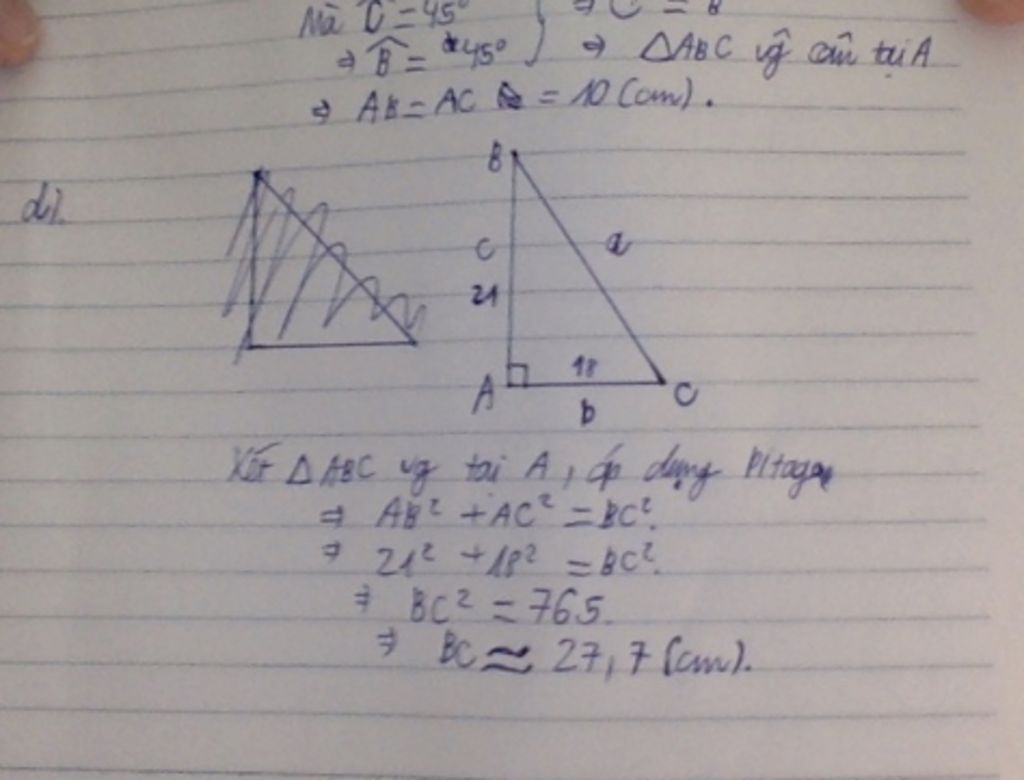 Mà Ĉ = 45°
⇒ Ĉ = B̂
⇒ B̂ = 45°
⇒ △ABC vg cân tại A
⇒ AB = AC = 10 (cm).
d/.
B
c
a
21
A
18
C
b
Xét △ABC vg tại A, áp dụng Pitago
⇒ AB² + AC² = BC².
⇒ 21² + 18² = BC².
⇒ BC² = 765.
⇒ BC ≈ 27,7 (cm).